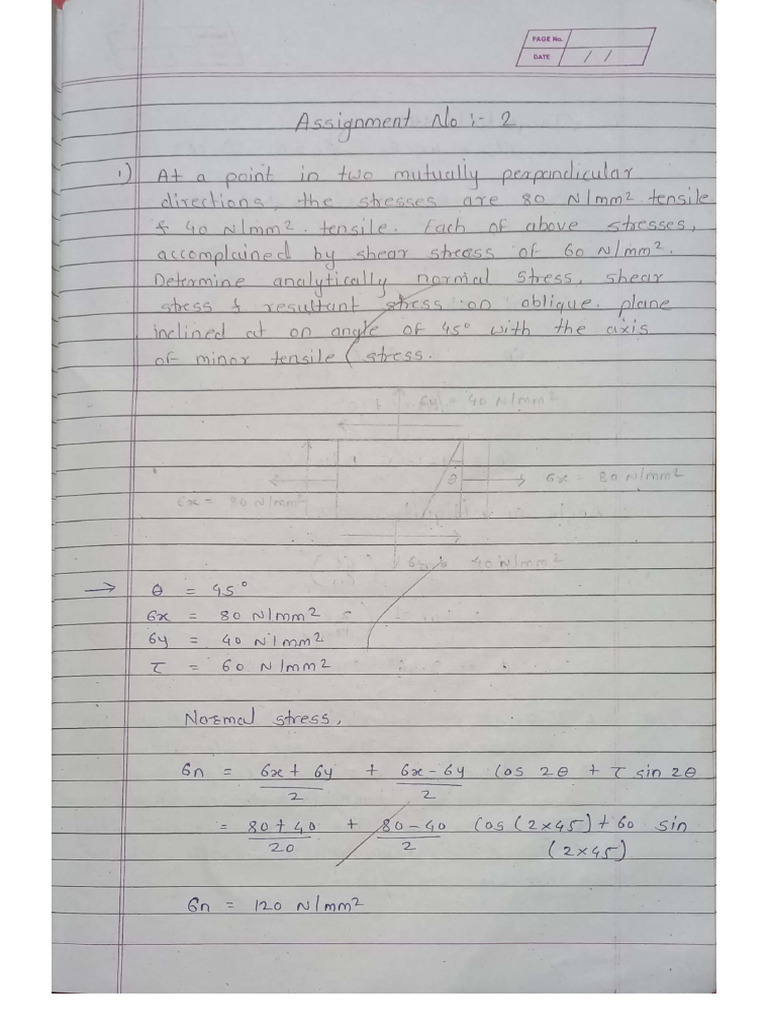 PAGE No.
DATE / /
Assignment No :- 2
1) At a point in two mutually perpandicular
directions, the stresses are 80 N/mm2 tensile
& 40 N/mm2. tensile. Each of above stresses,
accomplained by shear stress of 60 N/mm2.
Determine analytically normal stress, shear
stress & resultant stress on oblique. plane
inclined at on angle of 45° with the axis
of minor tensile stress.
6y = 40 N/mm2
θ 6x = 80 N/mm2
6x = 80 N/mm2
40 N/mm2
→ θ = 45°
6x = 80 N/mm2
6y = 40 N/mm2
τ = 60 N/mm2
Normal stress,
6n = 6x + 6y / 2 + 6x - 6y / 2 Cos 2θ + τ sin 2θ
= 80 + 40 / 20 + 80 - 40 / 2 Cos (2x45) + 60 sin
(2x45)
6n = 120 N/mm2